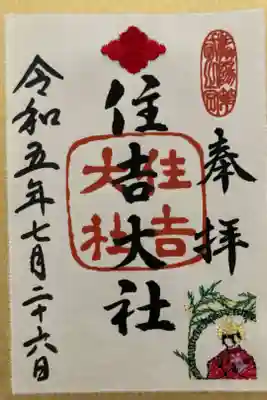 奉拝
住吉大社
住吉大社
令和五年七月二十六日